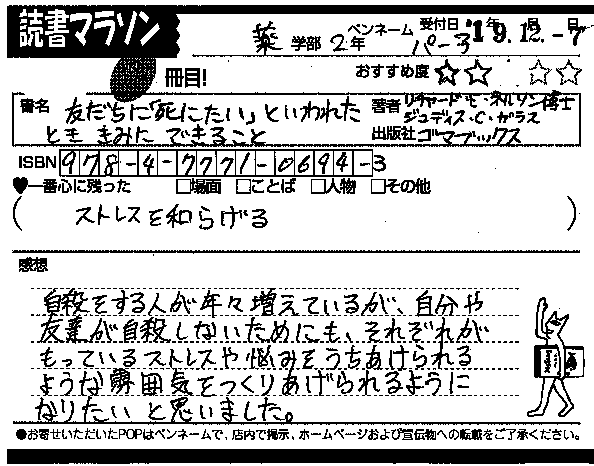 読書マラソン
薬 学部 2年 ペンネーム パー子 受付日 '19年12月-7日
冊目! おすすめ度 ☆☆ ☆☆
書名 友だちに「死にたい」といわれた
とき きみに できること
著者 リチャード・E・ネルソン博士
ジュディス・C・ガラス
出版社 ゴマブックス
ISBN 978-4-7771-0694-3
♥一番心に残った □場面 □ことば □人物 □その他
( ストレスを和らげる )
感想
自殺をする人が年々増えているが、自分や
友達が自殺しないためにも、それぞれが
もっているストレスや悩みをうちあけられる
ような雰囲気をつくりあげられるように
なりたいと思いました。
●お寄せいただいたPOPはペンネームで、店内で掲示、ホームページおよび宣伝物への転載をご了承ください。